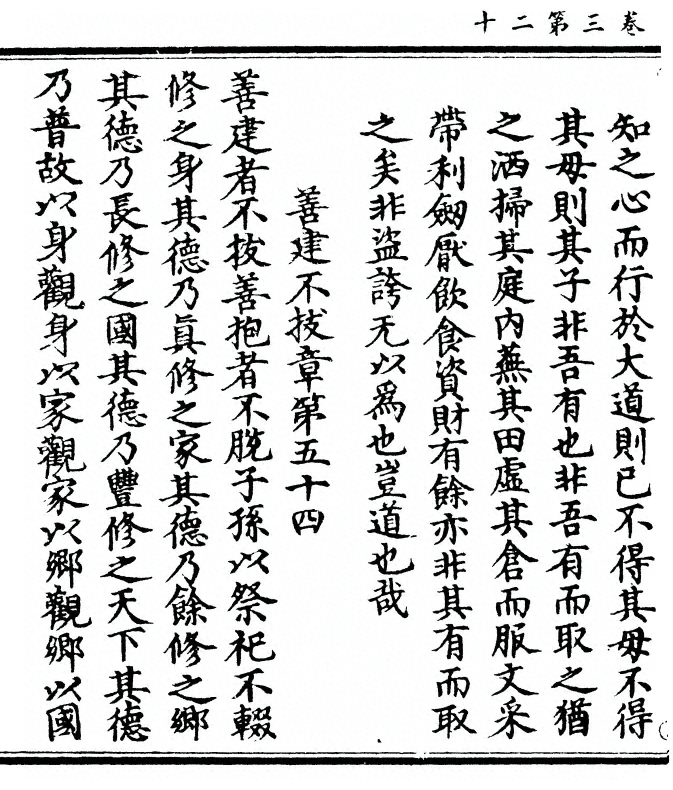 卷三第二十
知之心而行於大道則已不得其母不得
其母則其子非吾有也非吾有而取之猶
之洒掃其庭内蕪其田虛其倉而服文采
帶利劔厭飲食資財有餘亦非其有而取
之矣非盜誇无以爲也豈道也哉
善建不拔章第五十四
善建者不拔善抱者不脫子孫以祭祀不輟
修之身其德乃眞修之家其德乃餘修之鄉
其德乃長修之國其德乃豐修之天下其德
乃普故以身觀身以家觀家以鄉觀鄉以國